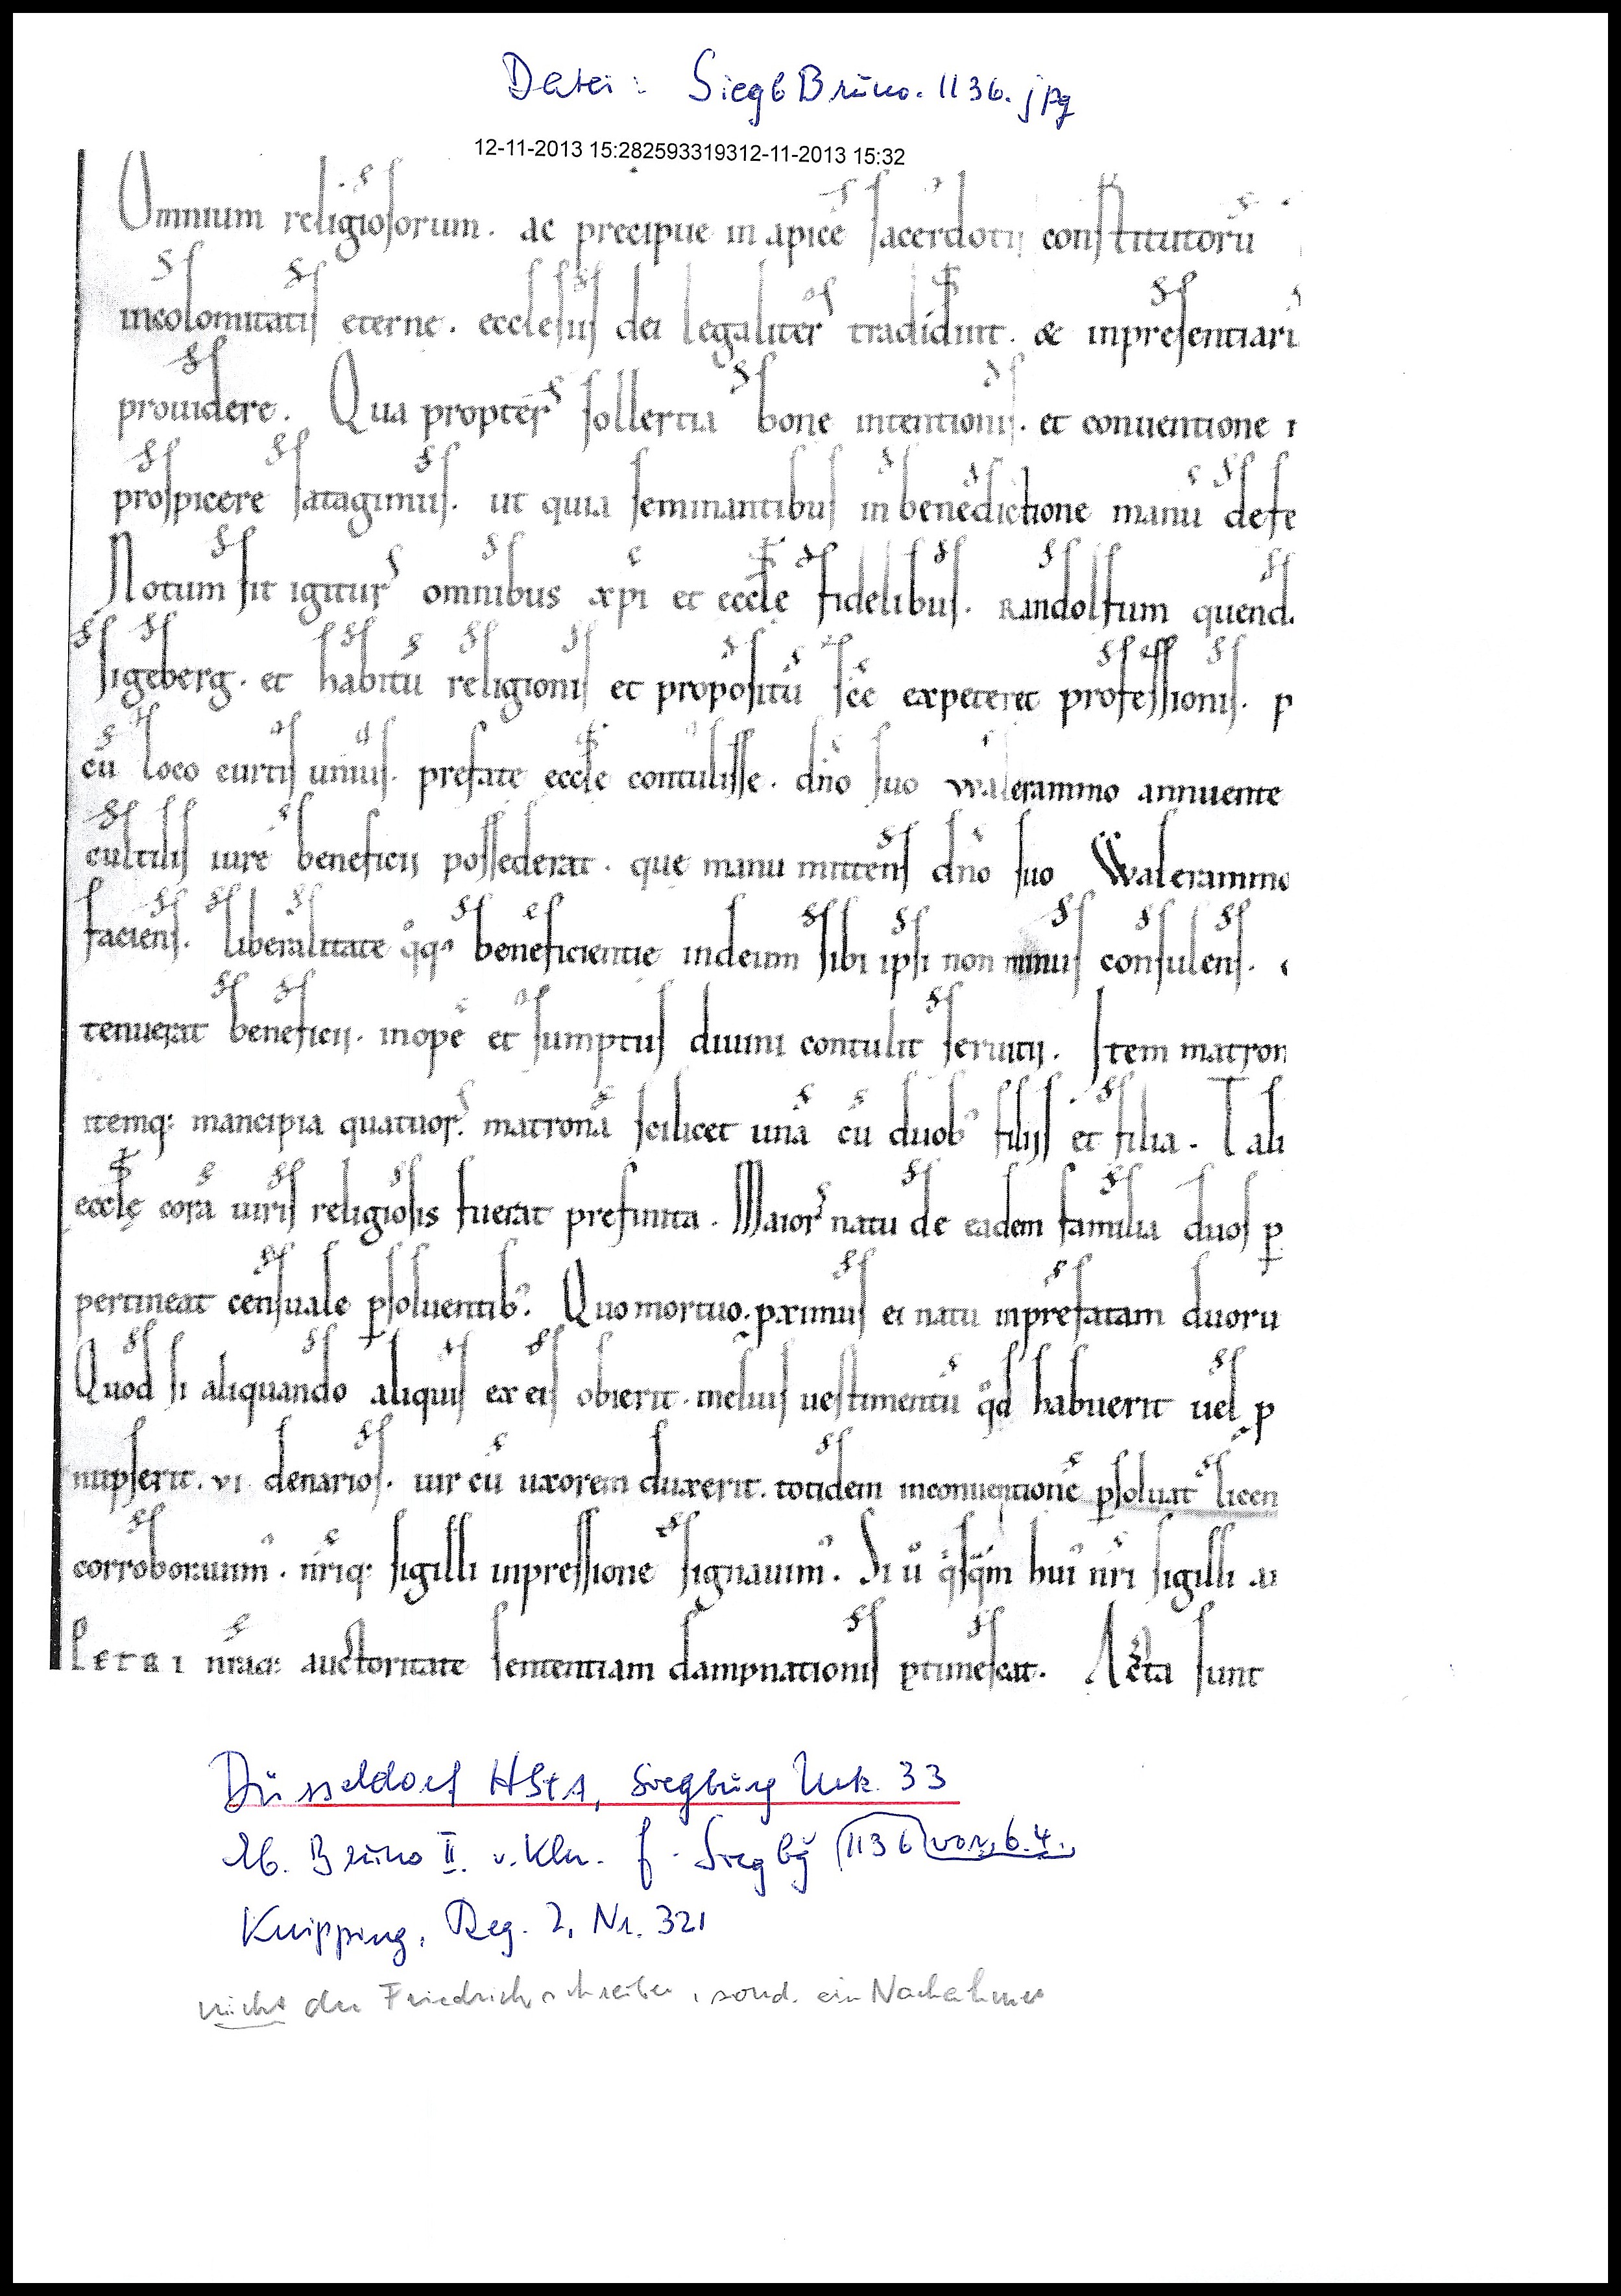 Datei: SiegbBruno.1136.jpg
12-11-2013 15:282593319312-11-2013 15:32
Omnium religioſorum. ac precipue in apicē ſacerdotij conſtitutorū
incolomitatiſ eterne. eccleſiiſ dei legaliter tradidint. & inpreſentiari
prouidere. Qua propter ſollertia bone intentioniſ. et conuentione
proſpicere ſatagimuſ. ut quia ſeminantibuſ in benedictione manū defe
Notum ſit igitur omnibus xp̄i et eccl̄ę fidelibuſ. Randolfum quend
ſigeberg. et habitū religioniſ et propoſitū ſc̄e expeteret profeſſioniſ. p
cū loco curtiſ uniuſ. prefate eccl̄e contuliſſe. dn̄o ſuo walerammo annuente
cultiliſ iure beneficii poſſederat. que manu mittenſ dn̄o ſuo Walerammo
facienſ. liberalitate q̊q; beneficientie indeium ſibi ipſi non minuſ conſulenſ.
tenuerat beneficii. inopē et ſumptuſ diuini contulit ſeruitii. Item matron
itemq: mancipia quatuor. matronā ſcilicet unā cū duob' filijſ et filia. Tali
eccl̄ę corā uiriſ religioſis fuerat prefinita. Maior natu de eadem familia duoſ p̱
pertineat cenſuale p̱ſoluentib'. Quo mortuo. pximuſ ei natu inprefatam duoru
Quod ſi aliquando aliquiſ ex eiſ obierit. meliuſ ueſtimentū qd̄ habuerit uel p
nupſerit. vi. denarioſ. uir cū uxorem duxerit. totidem inconuentionē p̱ſoluat licen
corroborauim'. nr̄iq: ſigilli inpreſſione ſignauim'. Si ū q̇ſq̄m hui' nr̄i ſigilli
Petri nr̄aq: auctoritate ſententiam dampnationiſ ptimeſcat. Acta ſunt
Düsseldorf HStA, Siegburg Urk. 33
Eb. Bruno II. v. Kln. f. Siegbg 1136 vor 6.4.
Knipping, Reg. 2, Nr. 321
nicht der Friedrichschreiber, sond. ein Nachahmer